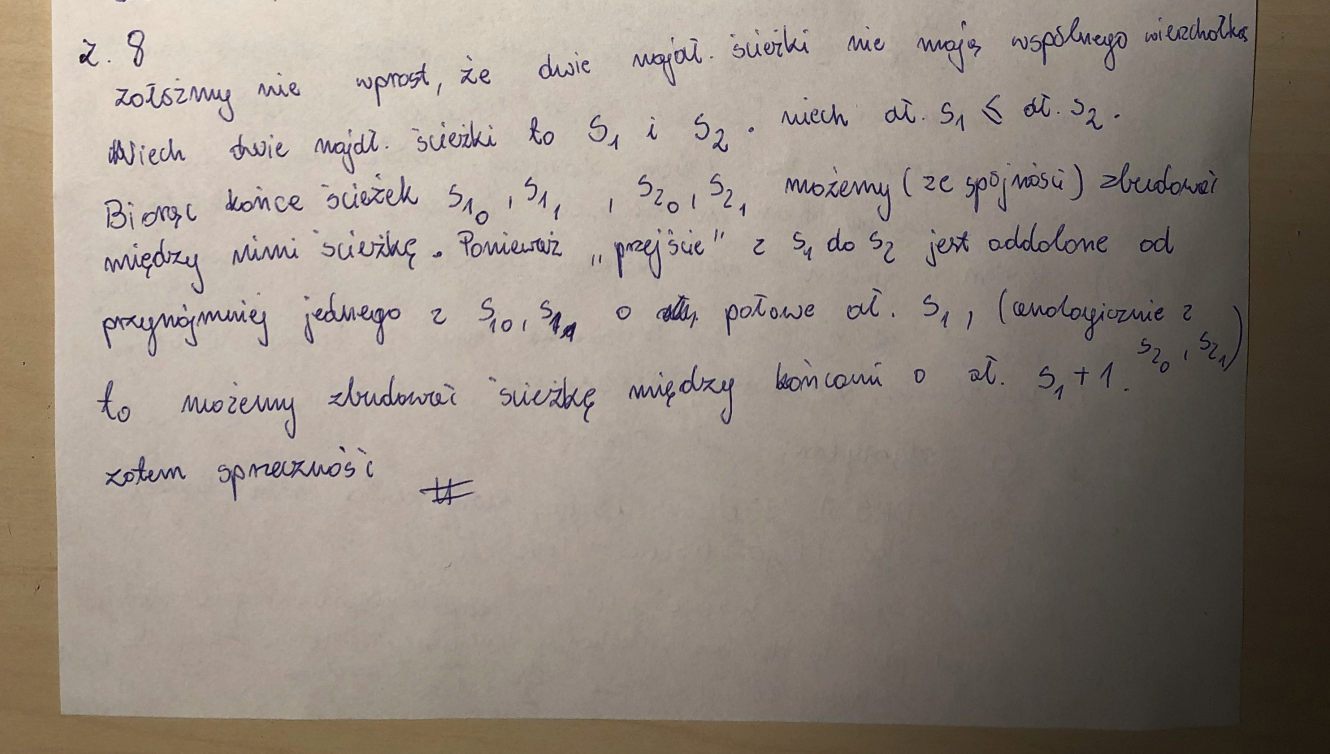 Z. 8
załóżmy nie wprost, że dwie najdł. ścieżki nie mają wspólnego wierzchołka
Niech dwie najdł. ścieżki to S₁ i S₂. niech dł. S₁ ≤ dł. S₂.
Biorąc końce ścieżek S₁₀, S₁₁, S₂₀, S₂₁ możemy (ze spójności) zbudować
między nimi ścieżkę. Ponieważ „przejście" z S₁ do S₂ jest oddalone od
przynajmniej jednego z S₁₀, S₁₁ o połowe dł. S₁, (analogicznie z S₂₀, S₂₁)
to możemy zbudować ścieżkę między końcami o dł. S₁ + 1.
zatem sprzeczność #